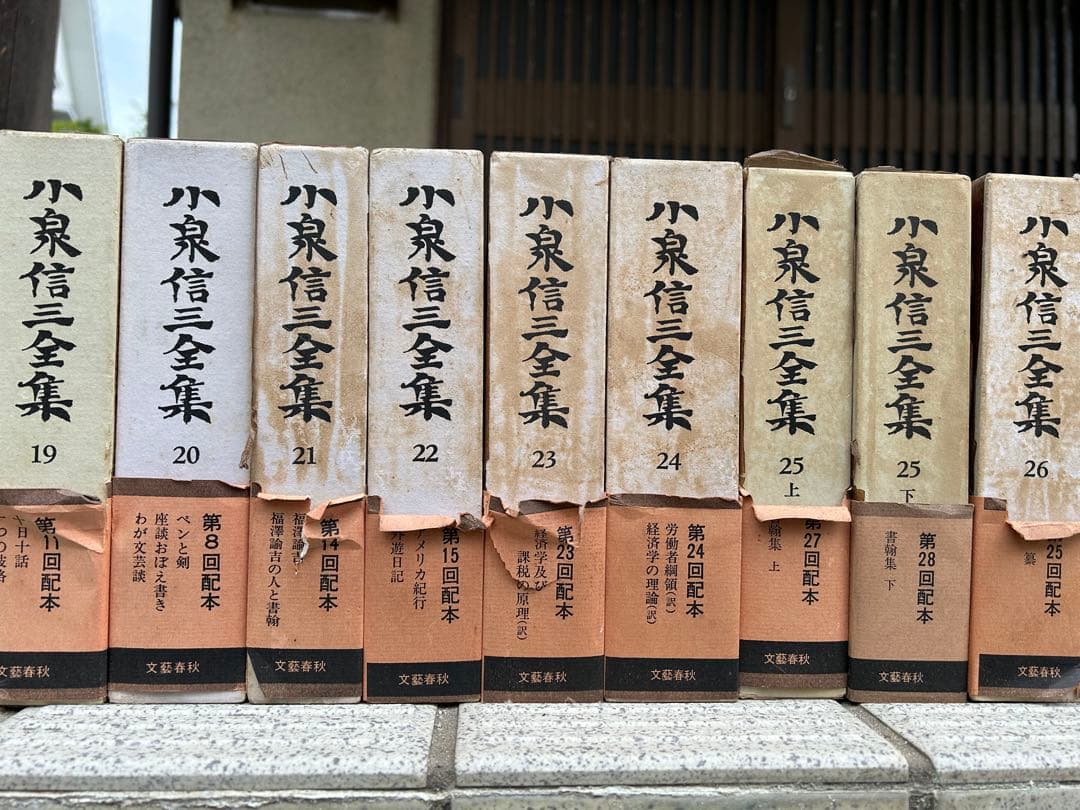 小泉信三全集
19
第11回配本
十日十話
文藝春秋
小泉信三全集
20
第8回配本
ペンと剣
座談おぼえ書き
わが文芸談
文藝春秋
小泉信三全集
21
第14回配本
福澤諭吉
福澤諭吉の人と書翰
文藝春秋
小泉信三全集
22
第15回配本
アメリカ紀行
外遊日記
文藝春秋
小泉信三全集
23
第23回配本
経済学及び
課税の原理(訳)
文藝春秋
小泉信三全集
24
第24回配本
労働者綱領(訳)
経済学の理論(訳)
文藝春秋
小泉信三全集
25
上
第27回配本
翰集 上
文藝春秋
小泉信三全集
25
下
第28回配本
書翰集 下
文藝春秋
小泉信三全集
26
25回配本
纂
文藝春秋